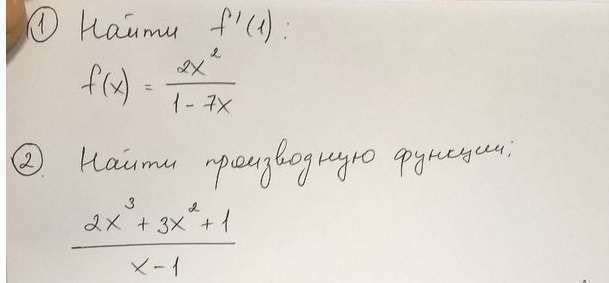 ① Найти f'(1):
f(x) = \frac{2x^2}{1-7x}
② Найти производную функции:
\frac{2x^3+3x^2+1}{x-1}